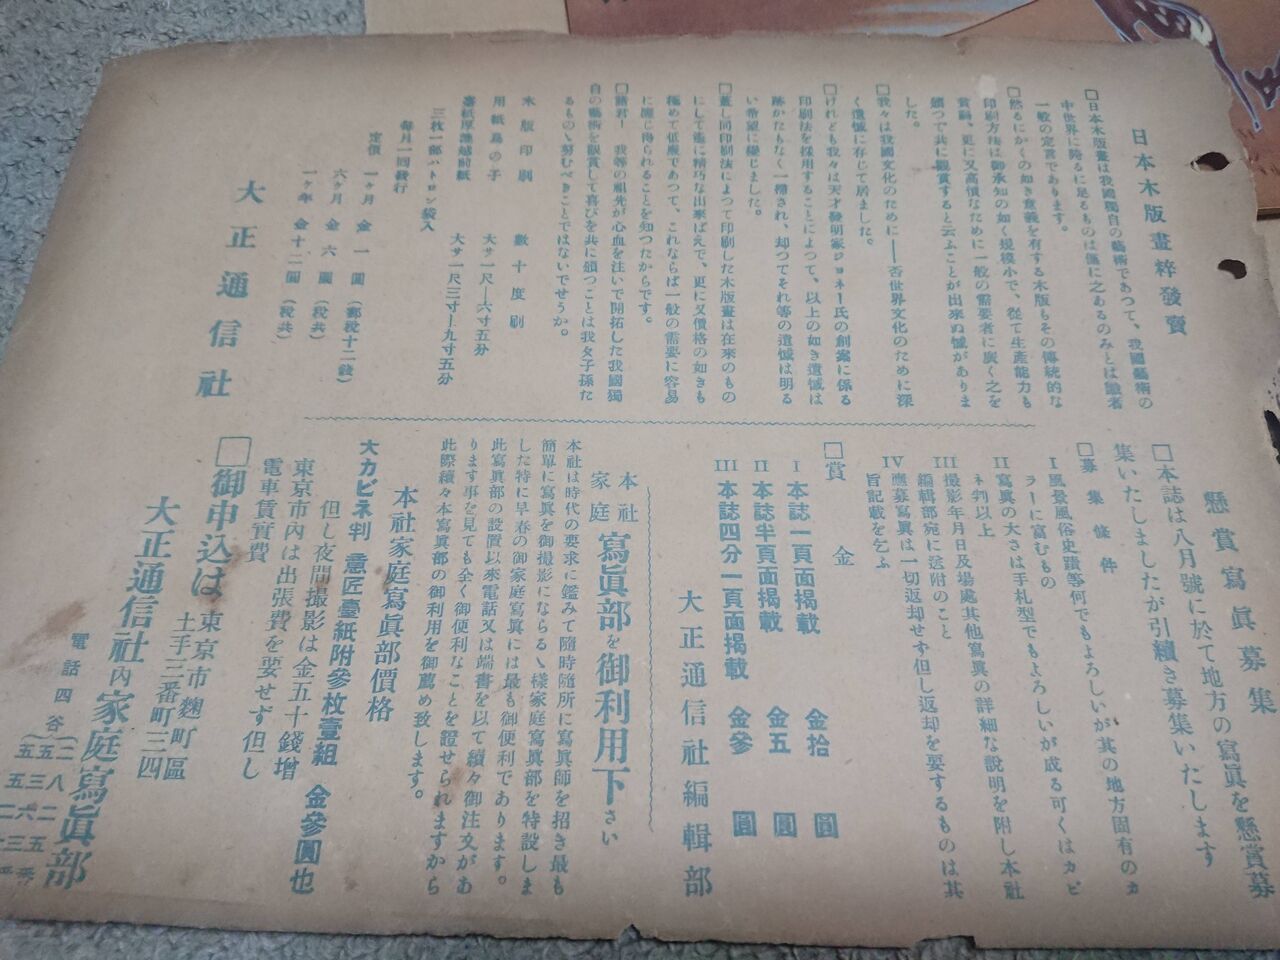 日本木版畫粹發賣
□日本木版畫は我國獨自の藝術であつて、我國藝術の
中世界に誇るに足るものは僅に之あるのみとは識者
一般の定言であります。
□然るにかくの如き意義を有する木版もその傳統的な
印刷方法は御承知の如く規模小で、從て生產能力も
貧弱、更に又高價なために一般の需要者に廣く之を
頒つて共に觀賞すると云ふことが出來ぬ憾がありま
した。
□我々は我國文化のために――否世界文化のために深
く遺憾に存じて居ました。
□けれども我々は天才發明家ジョネー氏の創案に係る
印刷法を採用することによつて、以上の如き遺憾は
跡かたもなく一掃され、却つてそれ等の遺憾は明る
い希望に變じました。
□蓋し同印刷法によつて印刷した木版畫は在來のもの
にして遙に精巧な出來ばえで、更に又價格の如きも
極めて低廉であつて、これならば一般の需要に容易
に應じ得られることを知つたからです。
□諸君！ 我等の祖先が心血を注いで開拓した我國獨
自の藝術を觀賞して喜びを共に頒つことは我々子孫た
るものゝ努むべきことではないでせうか。
木版印刷 數十度刷
用紙鳥の子 大サ一尺―六寸五分
臺紙厚漉越前紙 大サ一尺三寸―九寸五分
三枚一部ハトロン袋入
每月一回發行
定價 一ヶ月 金一圓（郵稅十二錢）
六ヶ月 金六圓（稅共）
一ヶ年 金十二圓（稅共）
大正通信社
懸賞寫眞募集
□本誌は八月號に於て地方の寫眞を懸賞募
集いたしましたが引續き募集いたします
□募集條件
I 風景風俗史蹟等何でもよろしいが其の地方固有のカ
ラーに富むもの
II 寫眞の大さは手札型でもよろしいが成る可くはカビ
ネ判以上
III 撮影年月日及場處其他寫眞の詳細な說明を附し本社
編輯部宛に送附のこと
IV 應募寫眞は一切返却せず但し返却を要するものは其
旨記載を乞ふ
□賞金
I 本誌一頁面揭載 金拾圓
II 本誌半頁面揭載 金五圓
III 本誌四分一頁面揭載 金參圓
大正通信社編輯部
本社家庭寫眞部を御利用下さい
本社は時代の要求に鑑みて隨時隨所に寫眞師を招き最も
簡單に寫眞を御撮影にならるゝ樣家庭寫眞部を特設しま
した特に早春の御家庭寫眞には最も御便利であります。
此寫眞部の設置以來電話又は端書を以て續々御注文があ
ります事を見ても全く御便利なことを證せられますから
此際續々本寫眞部の御利用を御薦め致します。
本社家庭寫眞部價格
大カビネ判 意匠臺紙附參枚壹組 金參圓也
但し夜間撮影は金五十錢增
東京市內は出張費を要せず但し
電車賃實費
□御申込は 東京市麴町區
土手三番町三四
大正通信社內家庭寫眞部
電話四谷